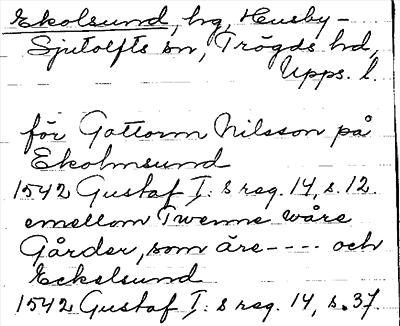 Ekolsund, hg, Husby-
Sjutolfts sn, Trögds hd,
Upps. l.
för Gottorm Nilsson på
Ekolmsund
1542 Gustaf I: s reg. 14, s. 12
emellom Twenne wåre
Gårder, som äre---- och
Eckelsund
1542 Gustaf I: s reg. 14, s. 37.